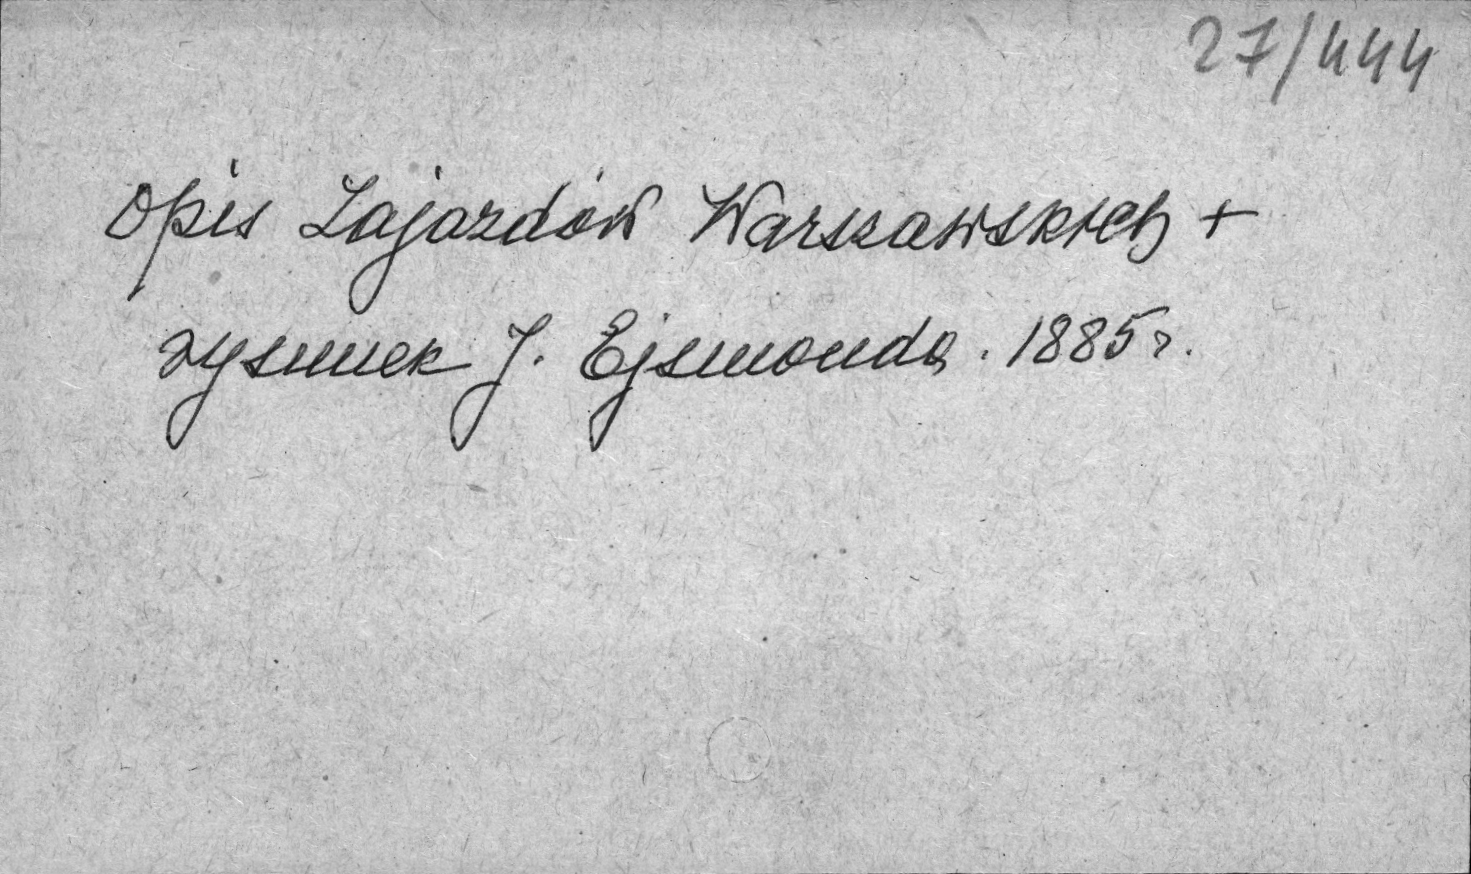 27/444
Opis Zajazdów Warszawskich +
rysunek J. Ejsmonda. 1885 r.